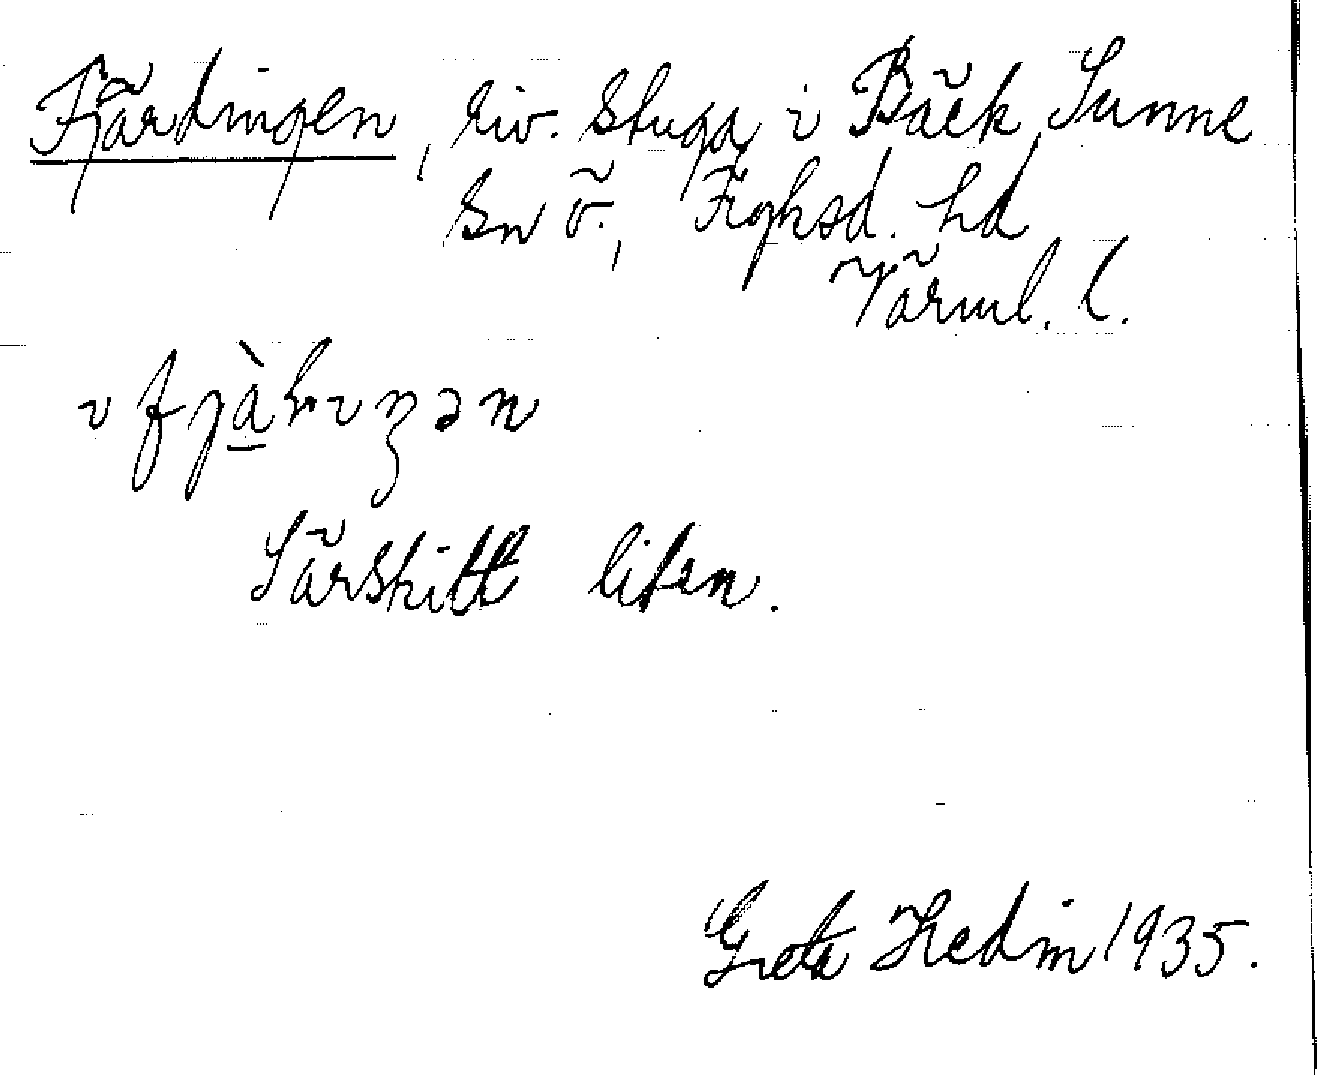 Fjärdingen, riv. stuga i Bäck Sunne
sn ö., Fryksd. hd
Värml. l.
Särskilt liten.
Greta Hedin 1935.